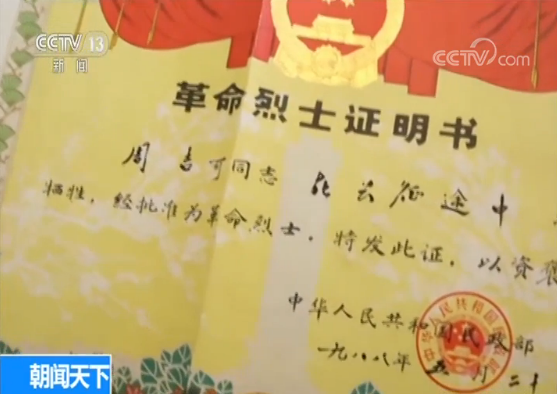 CCTV 13
新闻
CCTV.com
革命烈士证明书
周吉可同志 在长征途中
牺牲，经批准为革命烈士。特发此证，以资褒
中华人民共和国民政部
一九八八年五月二十
朝闻天下